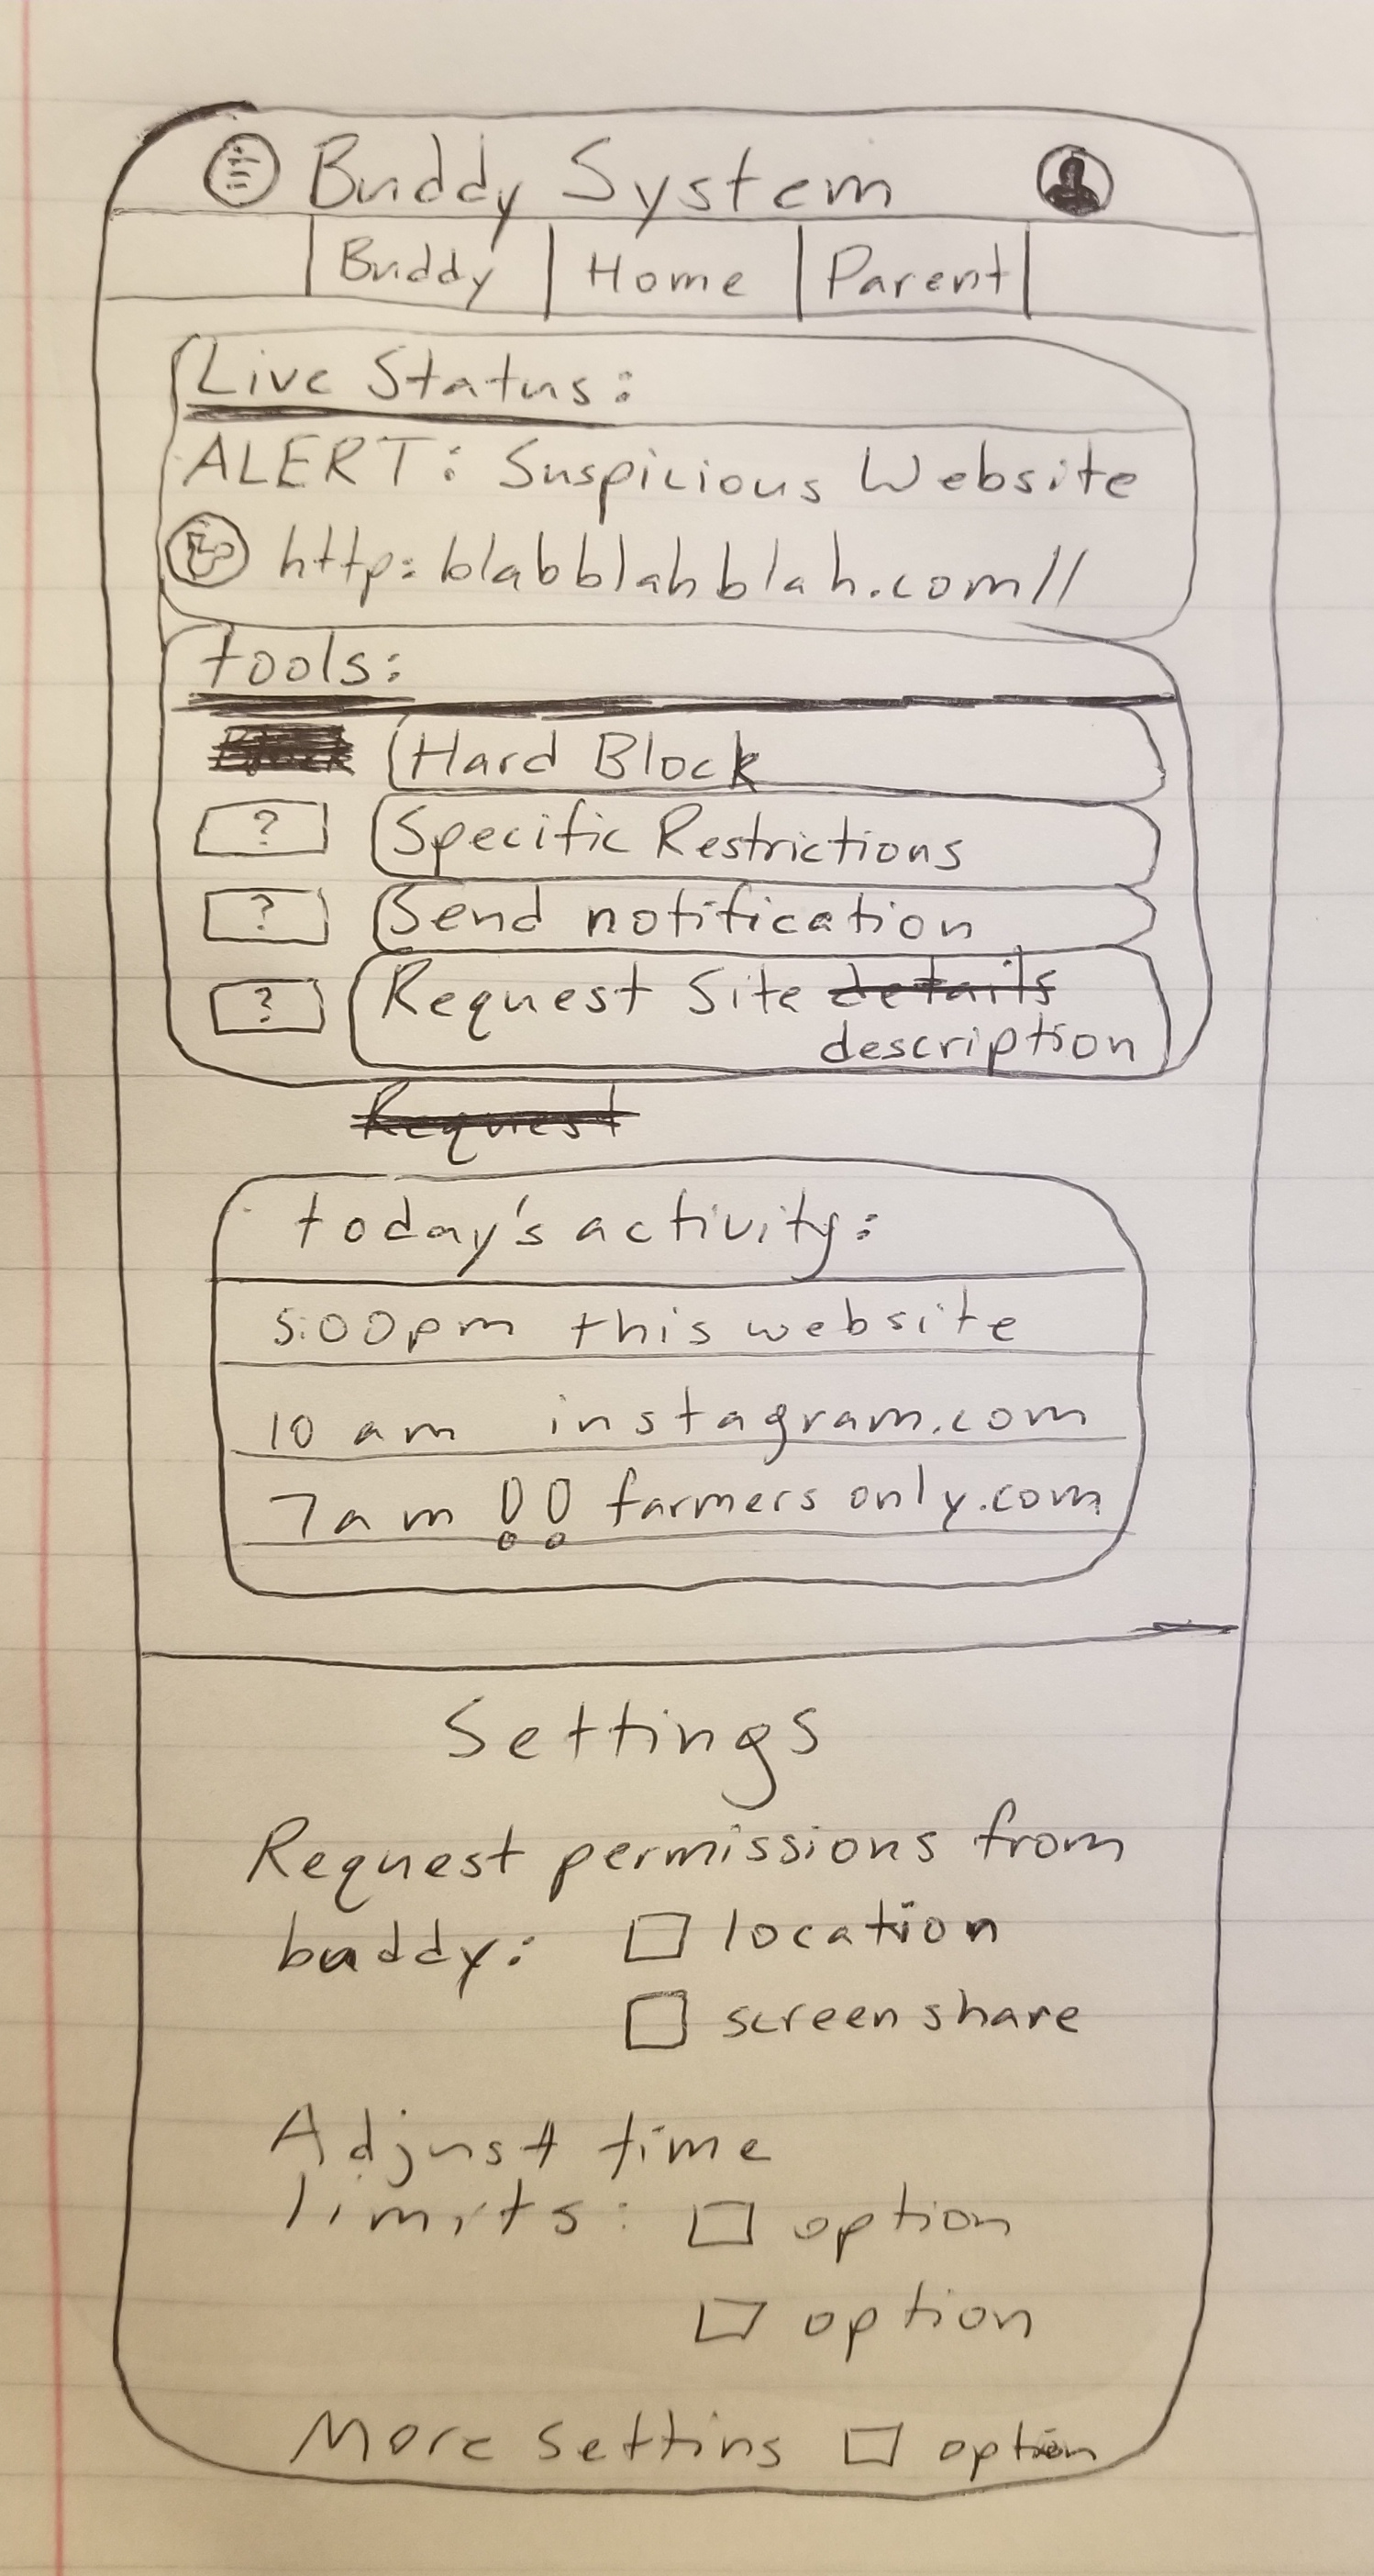 Buddy System
Buddy Home Parent
Live Status:
ALERT: Suspicious Website
http:blabblahblah.com//
tools:
Block Hard Block
? Specific Restrictions
? Send notification
? Request Site details
description
Request
today's activity:
5:00pm this website
10 am instagram.com
7am !! farmers only.com
Settings
Request permissions from
buddy: location
screen share
Adjust time
limits: option
option
More settins option